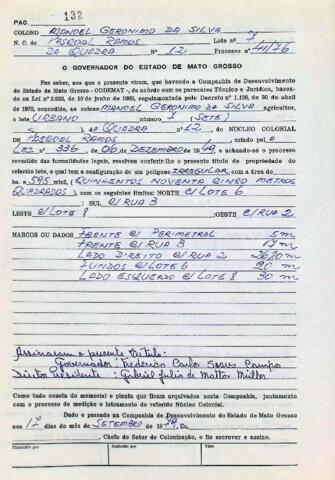 PAG. 132
COLONO MANOEL GERONIMO DA SILVA
N. C. de PASCOAL RAMOS Lote nº 7
DO QUADRA Nº 12 Processo nº 411/76
O GOVERNADOR DO ESTADO DE MATO GROSSO
Faz saber, aos que a presente virem, que havendo a Companhia de Desenvolvimento
do Estado de Mato Grosso - CODEMAT -, de acôrdo com os pareceres Técnico e Jurídico, baseada
na Lei nº 2.083, de 19 de junho de 1963, regulamentada pelo Decreto nº 1.198, de 30 de abril
de 1970, concedido, ao colono MANOEL GERONIMO DA SILVA agricultor,
o lote URBANO número 7 (SETE)
, DO QUADRA nº 12, DO NÚCLEO COLONIAL
DE PASCOAL RAMOS criado pela
LEI nº 336, de 06 de DEZEMBRO de 1949, e achando-se o processo
revestido das formalidades legais, resolveu conferir-lhe o presente título da propriedade
do referido lote, o qual tem a configuração de um polígono IRREGULAR, com a área de
ha. e 595 mts2, (QUINHENTOS NOVENTA CINCO METROS
QUADRADOS) e com os seguintes limites: NORTE C/LOTE 6
: SUL C/RUA 3
LESTE C/LOTE 8 :OESTE C/RUA 2
MARCOS OU DADOS FRENTE C/ PERIMETRAL 5m
FRENTE C/RUA 3 17m
LADO DIREITO C/RUA 2 26,80m
FUNDOS C/LOTE 6 20m
LADO ESQUERDO C/LOTE 8 30m
Assinaram o presente titulo:
Governador: Frederico Carlos Soares Campos
Diretor Presidente : Gabriel Julio de Mattos Müller
Como tudo consta do memorial e planta que ficam arquivados nesta Companhia, juntamente
com o processo de medição e loteamento do referido Núcleo Colonial.
Dado e passado na Companhia de Desenvolvimento do Estado de Mato Grosso
aos 17 dias do mês de SETEMBRO de 1979, Eu,
, Chefe do Setor de Colonização, o fiz escrever e assino.
Transcrito por Conferido por Visto